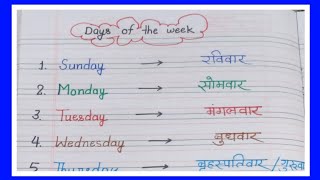 Days of the week
1. Sunday → रविवार
2. Monday → सोमवार
3. Tuesday → मंगलवार
4. Wednesday → बुधवार
5. Thursday → बृहस्पतिवार /